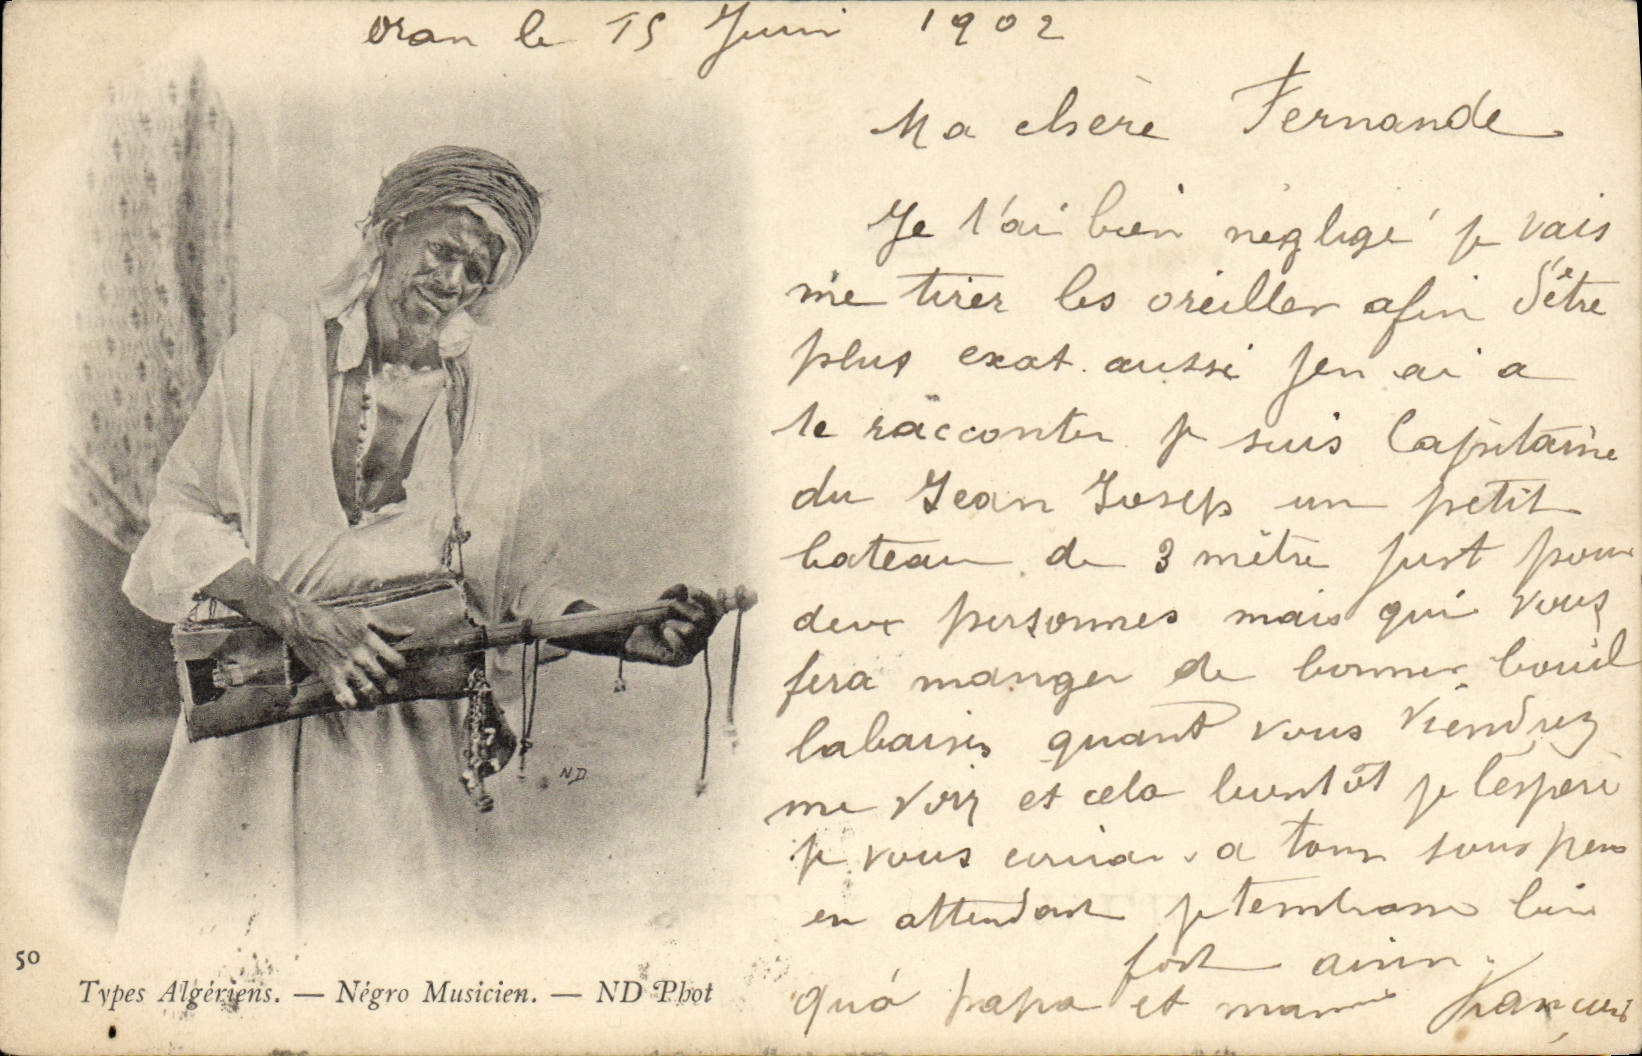 Oran le 15 Juin 1902
Ma chère Fernande
Je t'ai bien négligé je vais
me tirer les oreilles afin d'être
plus exat aussi j'en ai a
te racconter je suis Capitaine
du Jean Josep un petit
bateau de 3 mètre just pour
deux personnes mais qui vous
fera manger de bonnes bouil
labaises quant vous viendrez
me voir et cela bientôt je l'espère
je vous a tous sous peu
en attendant je t'embrasse bien
fort ainsi
qu'à papa et maman François
ND
50
Types Algériens. — Négro Musicien. — ND Phot